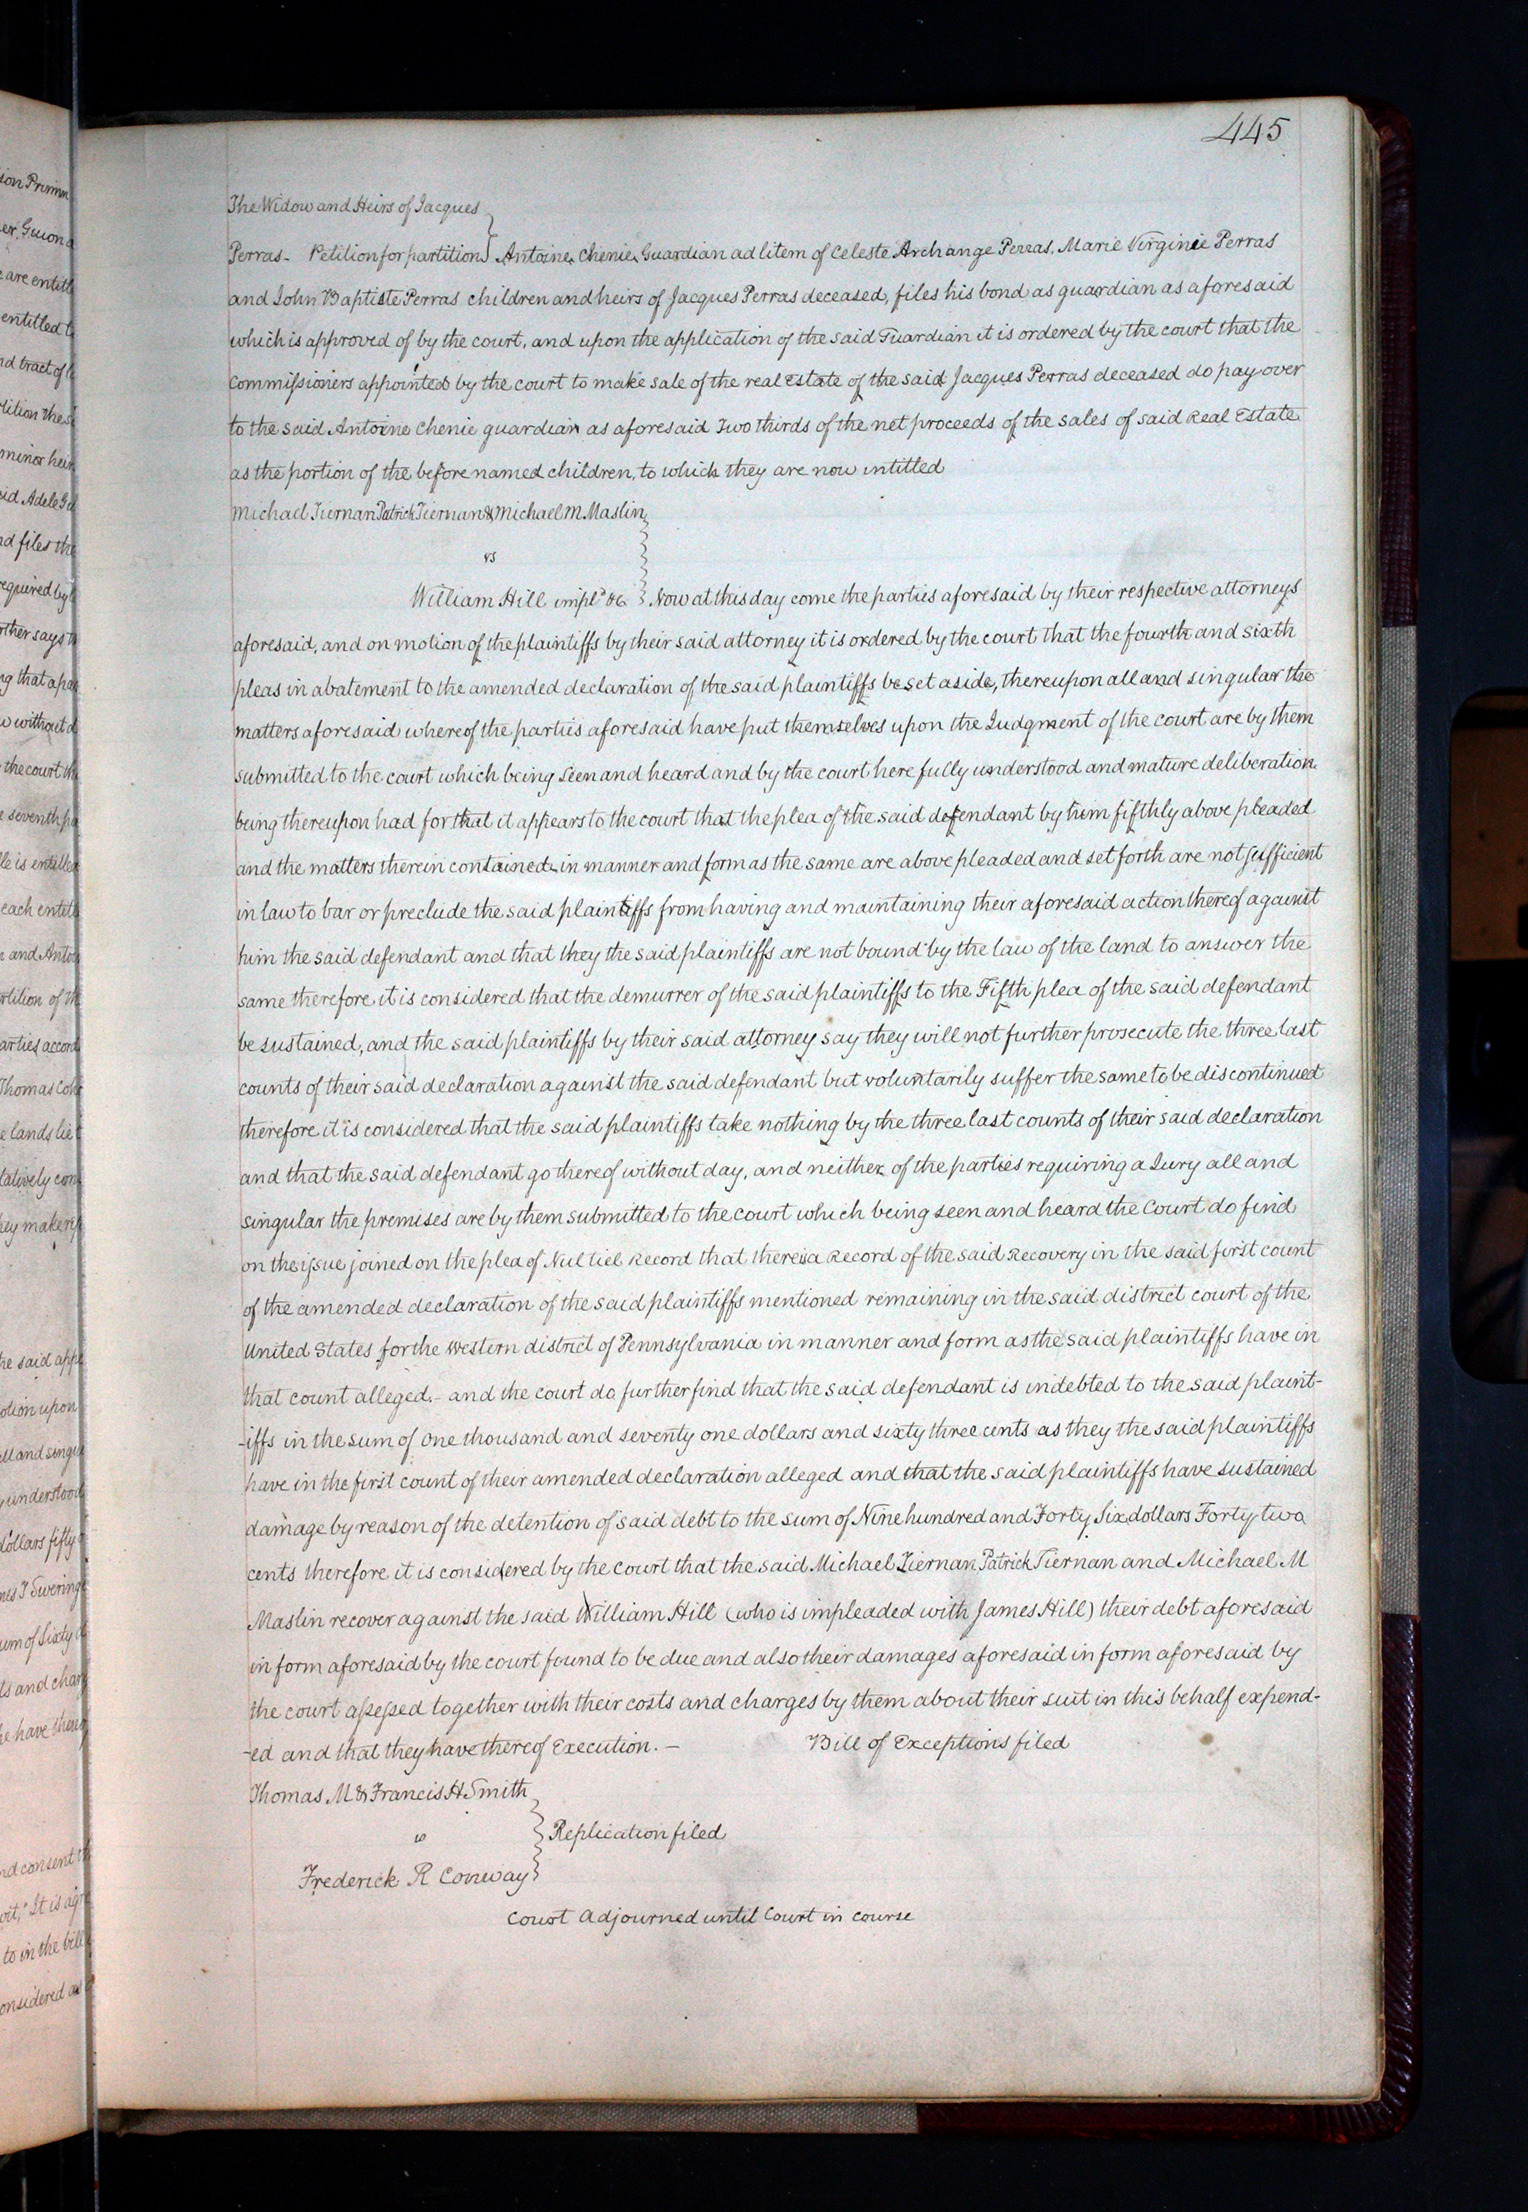 445
The Widow and Heirs of Jacques
Perras - Petition for partition } Antoine Chenie Guardian ad litem of Celeste Archange Perras, Marie Virginie Perras
and John Baptiste Perras children and heirs of Jacques Perras deceased, files his bond as guardian as aforesaid
which is approved of by the court, and upon the application of the said Guardian it is ordered by the court that the
Commissioners appointed by the court to make sale of the real Estate of the said Jacques Perras deceased do pay over
to the said Antoine Chenie guardian as aforesaid Two thirds of the net proceeds of the sales of said Real Estate
as the portion of the before named children, to which they are now intitled
Michael Tiernan Patrick Tiernan & Michael M. Maslin
vs
William Hill impl.d &c } Now at this day come the parties aforesaid by their respective attorneys
aforesaid, and on motion of the plaintiffs by their said attorney it is ordered by the court that the fourth and sixth
pleas in abatement to the amended declaration of the said plaintiffs be set aside, thereupon all and singular the
matters aforesaid whereof the parties aforesaid have put themselves upon the Judgment of the court are by them
submitted to the court which being seen and heard and by the court here fully understood and mature deliberation
being thereupon had for that it appears to the court that the plea of the said defendant by him fifthly above pleaded
and the matters therein contained in manner and form as the same are above pleaded and set forth are not sufficient
in law to bar or preclude the said plaintiffs from having and maintaining their aforesaid action thereof against
him the said defendant and that they the said plaintiffs are not bound by the law of the land to answer the
same therefore it is considered that the demurrer of the said plaintiffs to the Fifth plea of the said defendant
be sustained, and the said plaintiffs by their said attorney say they will not further prosecute the three last
counts of their said declaration against the said defendant but voluntarily suffer the same to be discontinued
therefore it is considered that the said plaintiffs take nothing by the three last counts of their said declaration
and that the said defendant go thereof without day, and neither of the parties requiring a Jury all and
singular the premises are by them submitted to the court which being seen and heard the Court do find
on the issue joined on the plea of Nul tiel Record that there is a Record of the said Recovery in the said first count
of the amended declaration of the said plaintiffs mentioned remaining in the said district court of the
United States for the Western district of Pennsylvania in manner and form as the said plaintiffs have in
that count alleged. - and the court do further find that the said defendant is indebted to the said plaint-
-iffs in the sum of One thousand and seventy one dollars and sixty three cents as they the said plaintiffs
have in the first count of their amended declaration alleged and that the said plaintiffs have sustained
damage by reason of the detention of said debt to the sum of Nine hundred and Forty Six dollars Forty two
cents therefore it is considered by the Court that the said Michael Tiernan Patrick Tiernan and Michael M
Maslin recover against the said William Hill (who is impleaded with James Hill) their debt aforesaid
in form aforesaid by the court found to be due and also their damages aforesaid in form aforesaid by
the court assessed together with their costs and charges by them about their suit in this behalf expend-
-ed and that they have thereof Execution. - Bill of Exceptions filed
Thomas M & Francis H Smith
vs } Replication filed
Frederick R Conway
Court Adjourned until Court in course